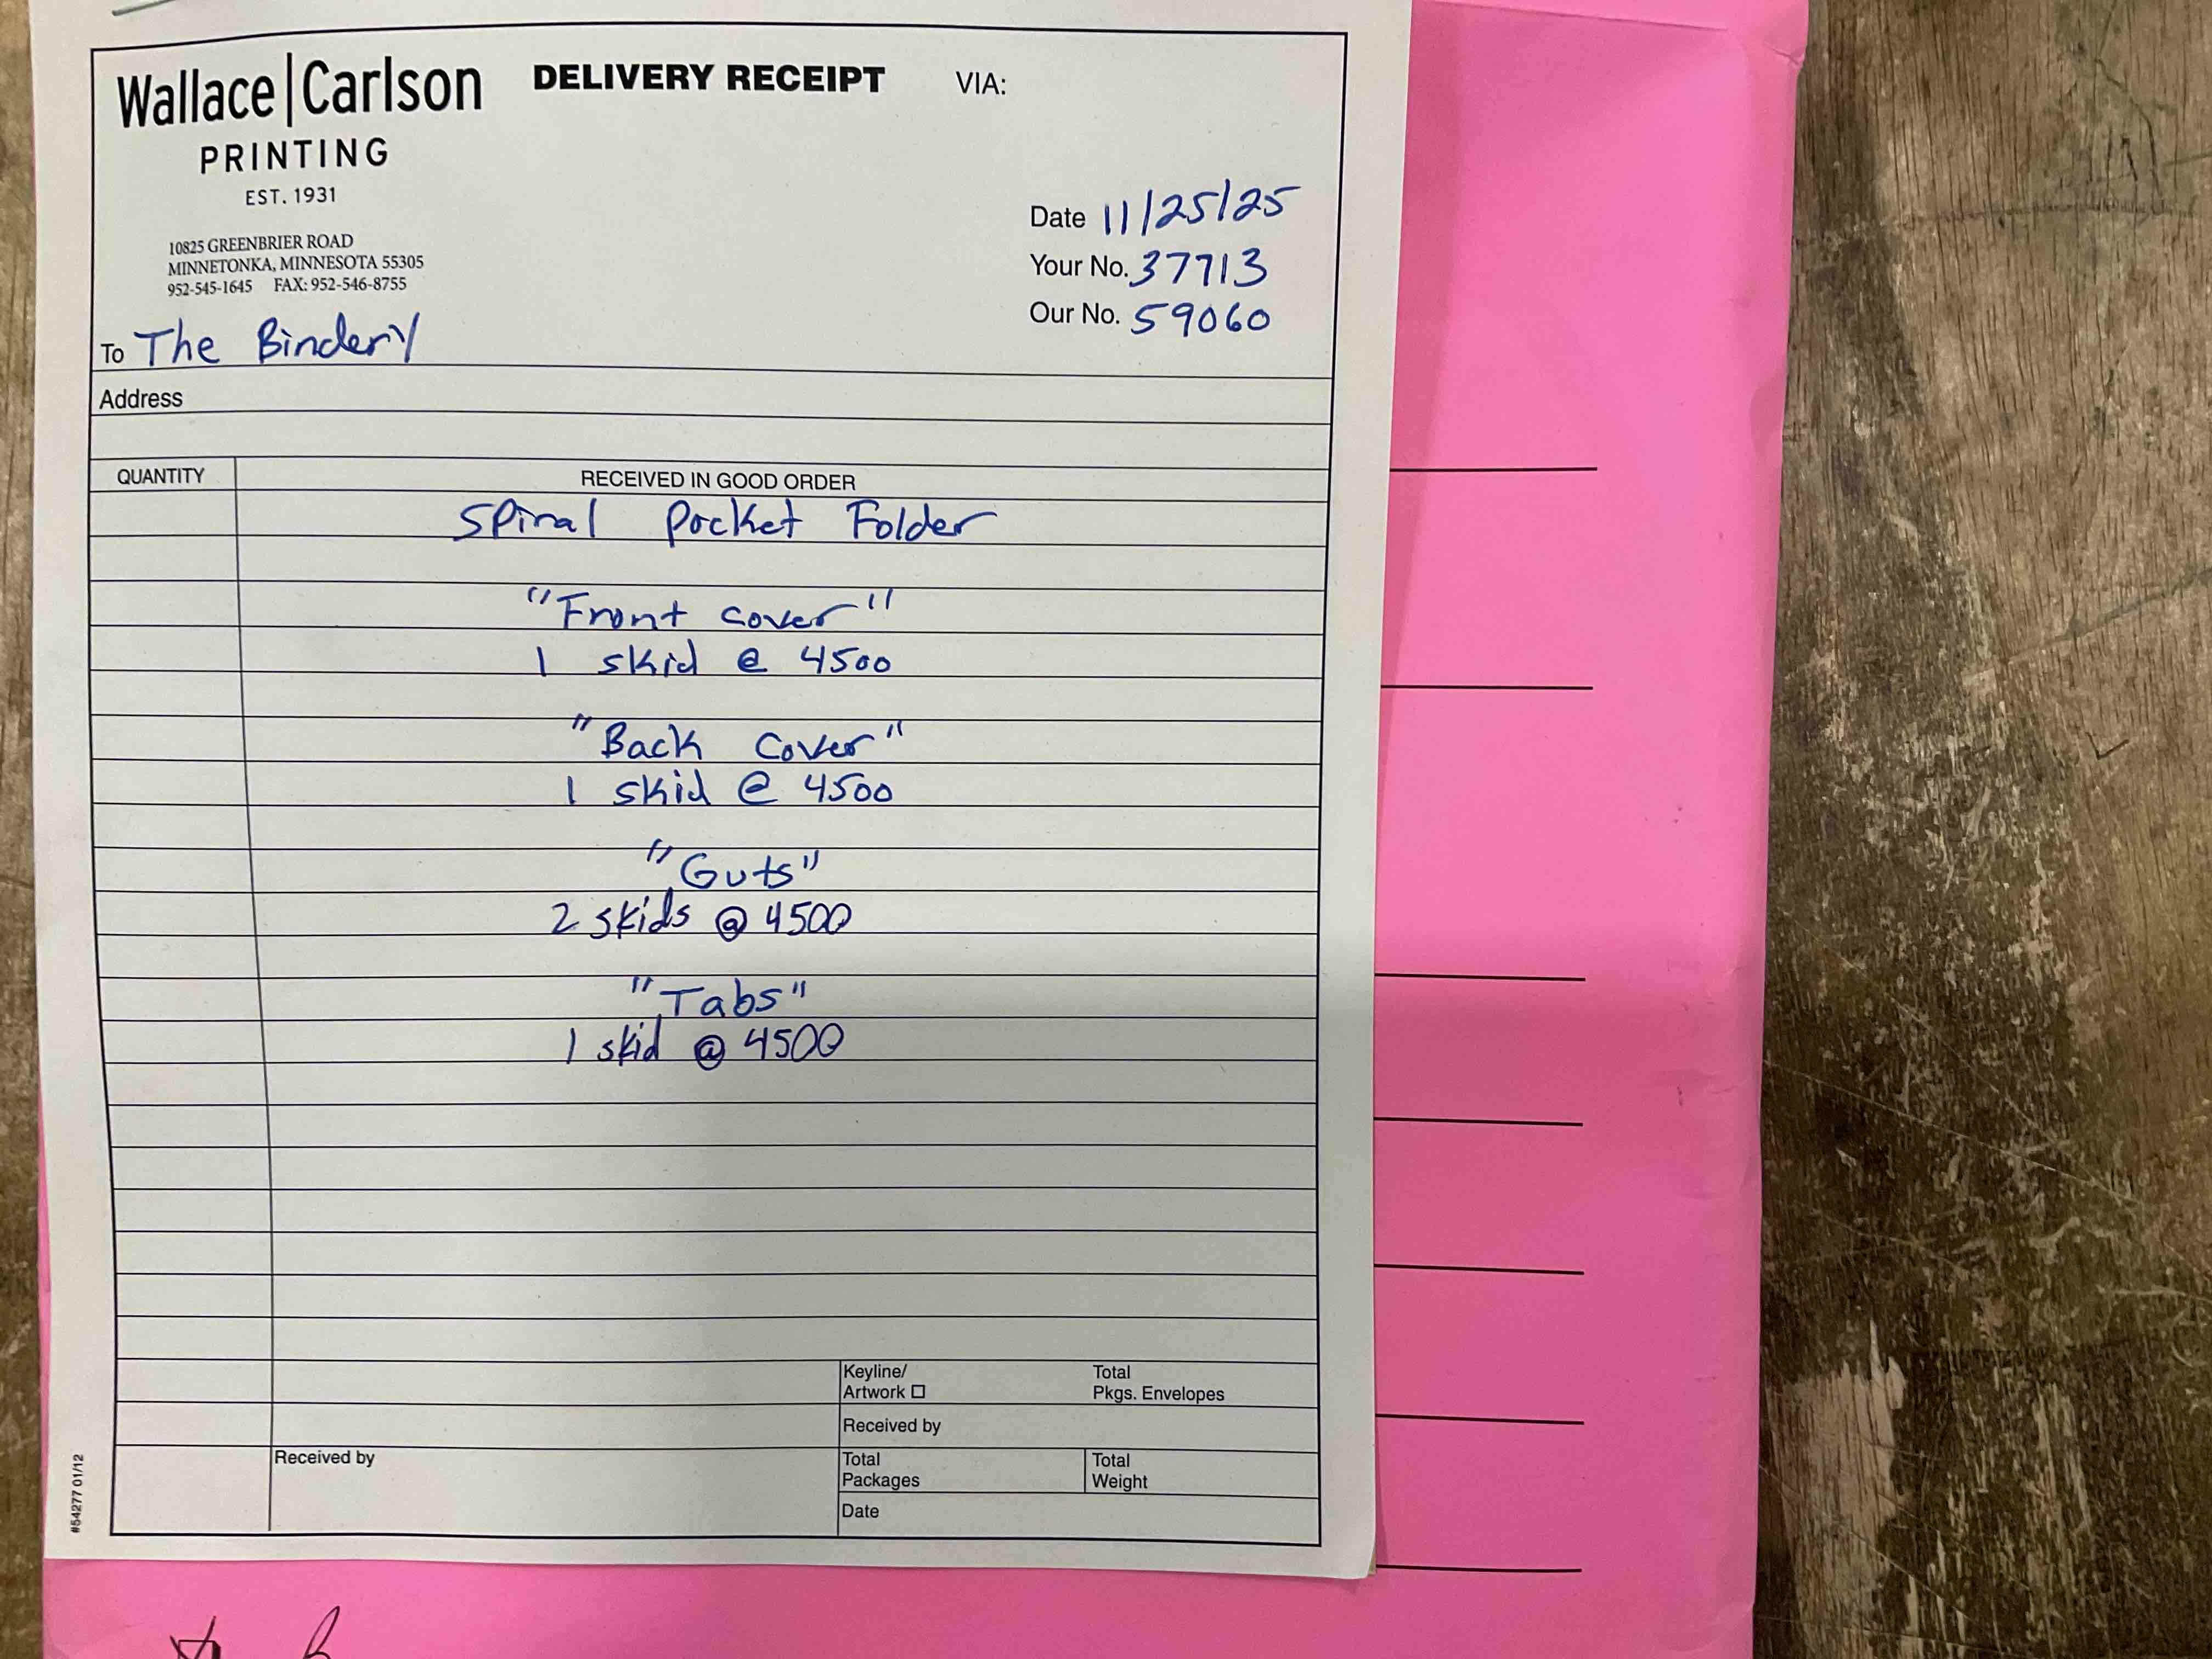 Wallace|Carlson
PRINTING
EST. 1931
10825 GREENBRIER ROAD
MINNETONKA, MINNESOTA 55305
952-545-1645 FAX: 952-546-8755
DELIVERY RECEIPT VIA:
Date 11/25/25
Your No. 37713
Our No. 59060
To The Bindery
Address
QUANTITY RECEIVED IN GOOD ORDER
Spiral Pocket Folder
"Front cover"
1 skid @ 4500
"Back Cover"
1 skid @ 4500
"Guts"
2 skids @ 4500
"Tabs"
1 skid @ 4500
Keyline/
Artwork ☐
Total
Pkgs. Envelopes
Received by
Received by
Total
Packages
Total
Weight
Date
#54277 01/12